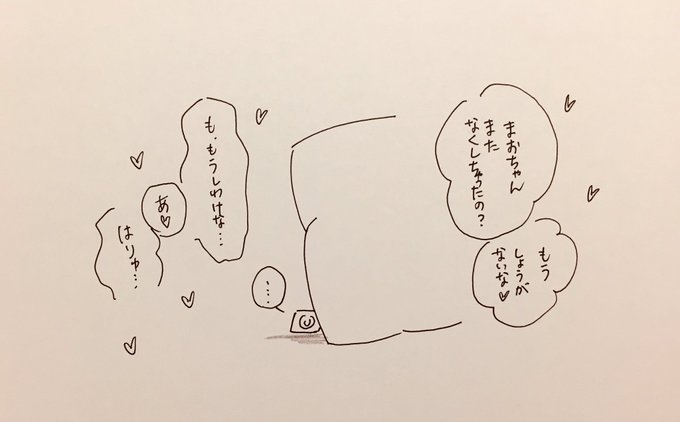 まおちゃん
また
なくしちゃったの？
もう
しょうが
ないな♥
も、もうしわけな…
あ♡
はりゅ…
…